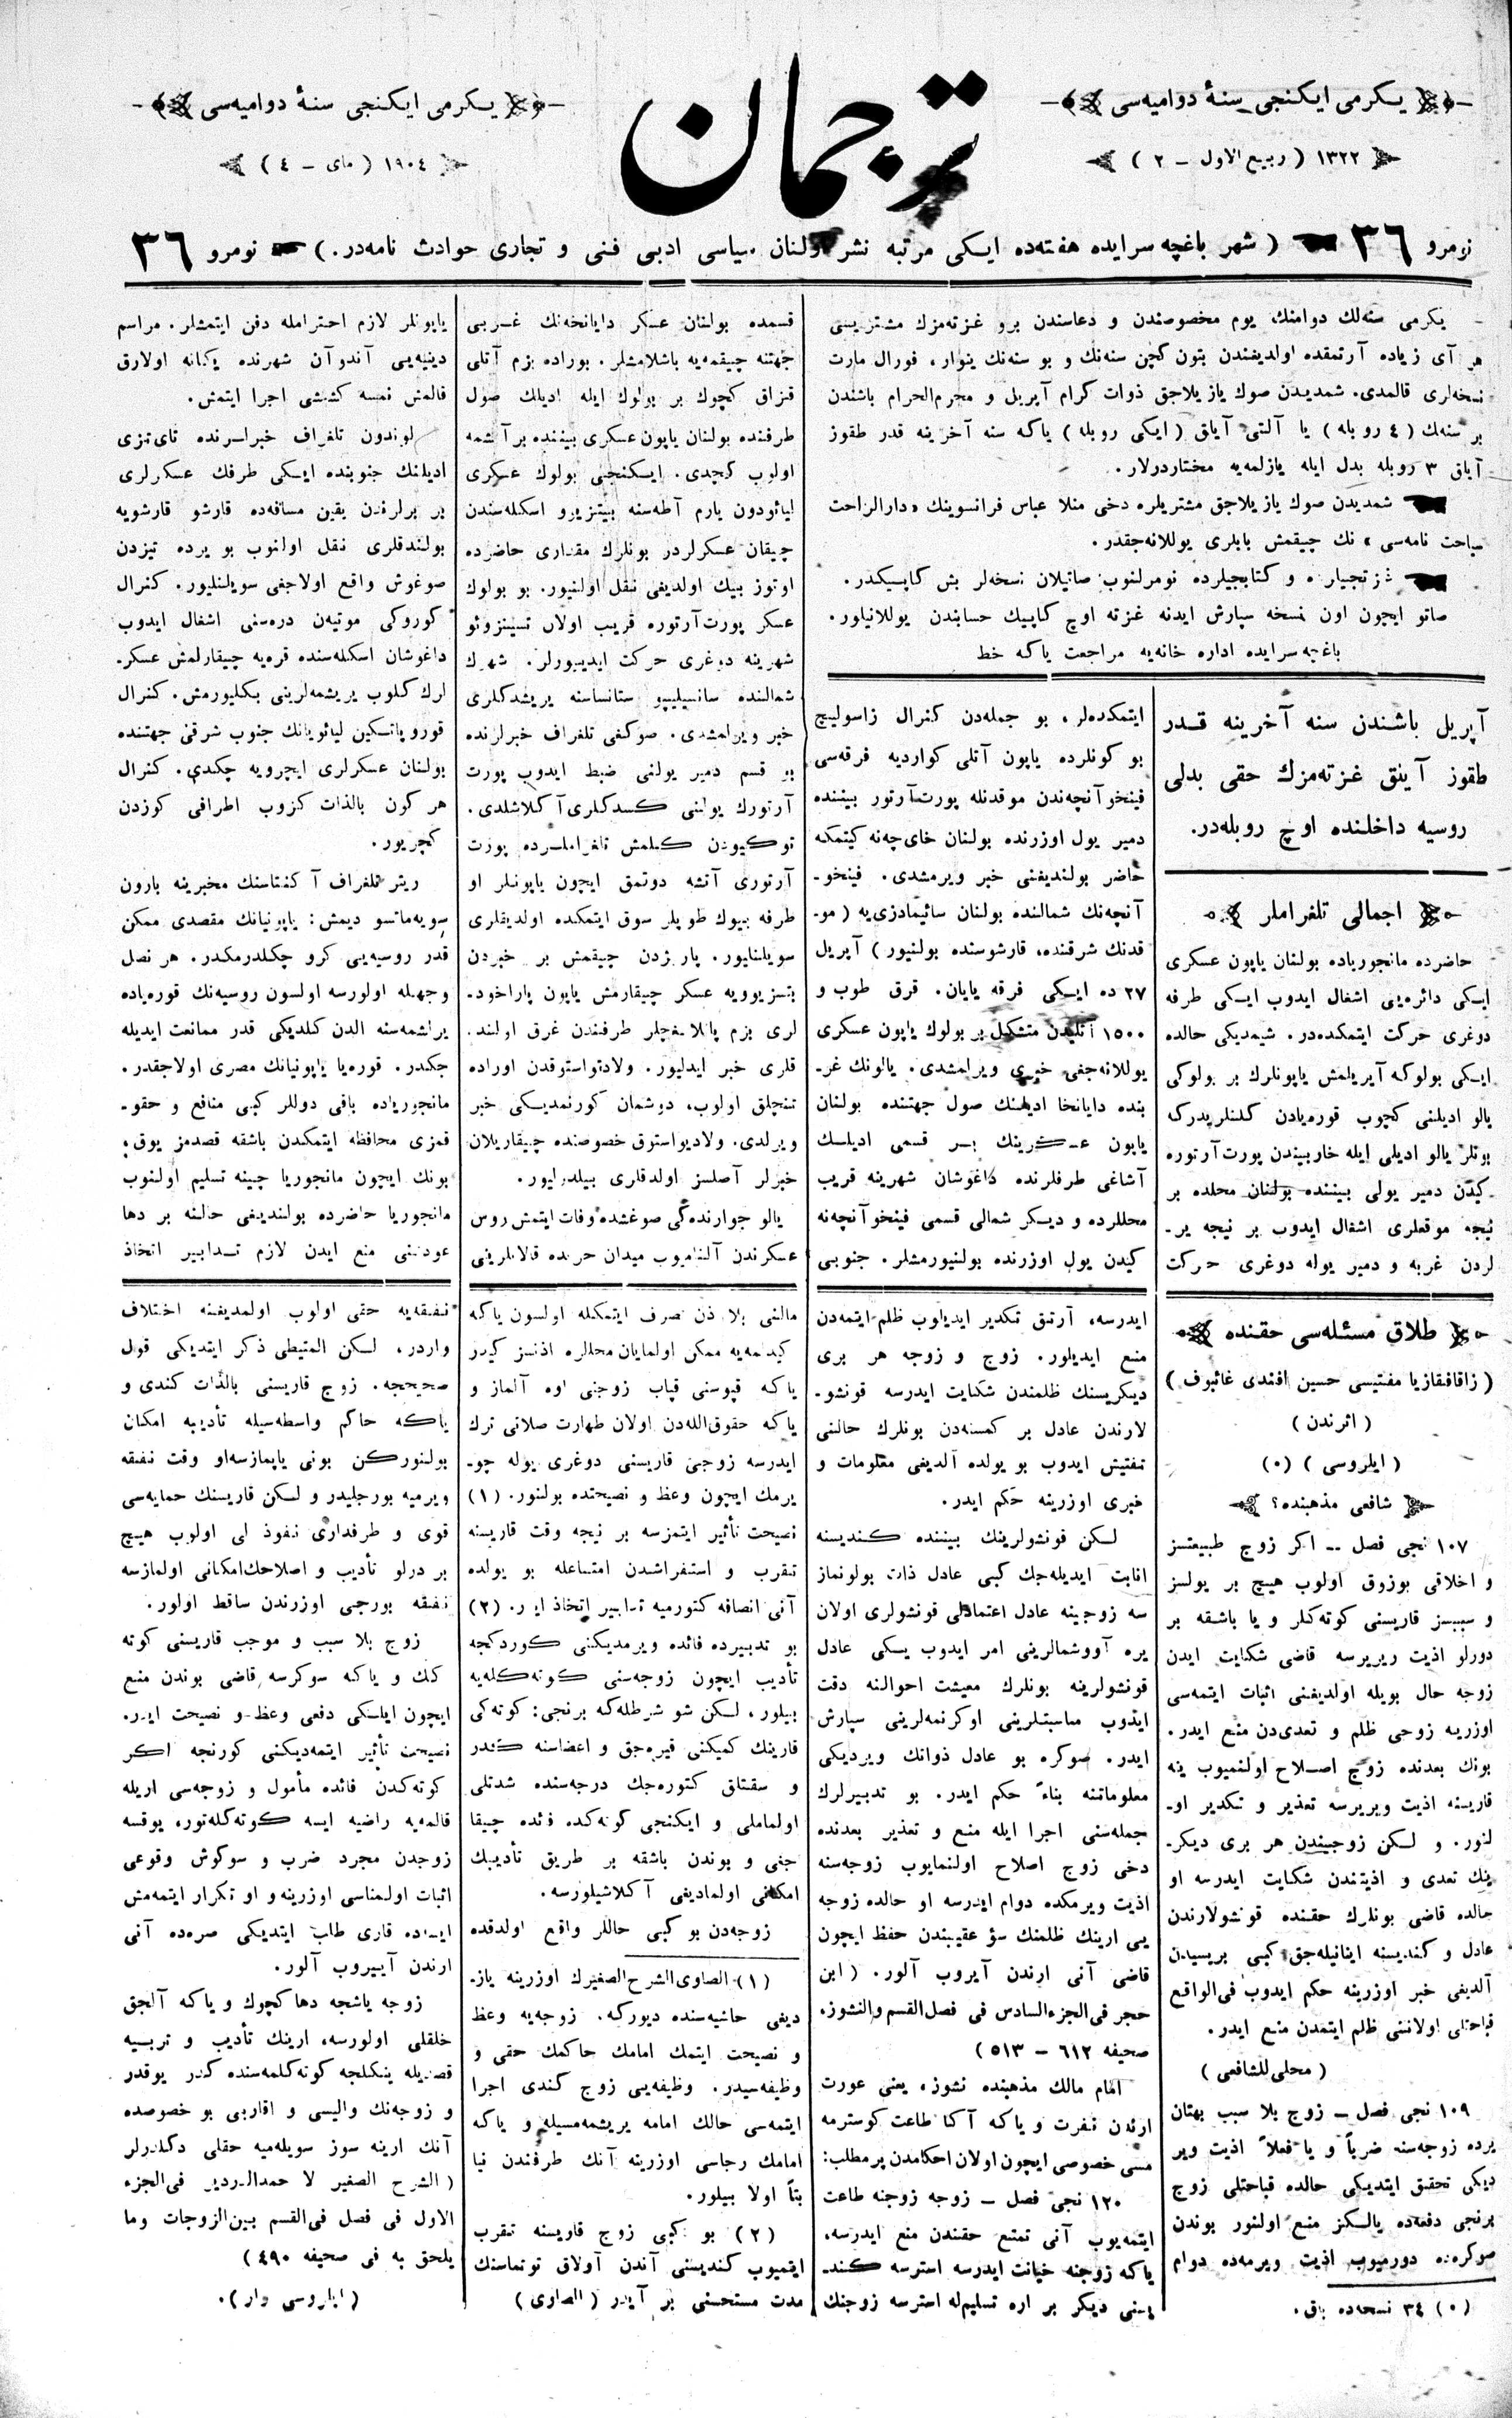 یكرمی ایكنجی سنهٔ دوامیه‌سی
۱۳۲۲ ( ربیع الاول ـ ۲ )
ترجمان
یكرمی ایكنجی سنهٔ دوامیه‌سی
۱۹۰٤ ( مای ـ ٤ )
نومرو ۳٦ ( شهر باغچه سرایده هفته‌ده ایكی مرتبه نشر اولنان سیاسی ادبی فنی و تجاری حوادث نامه‌در. ) نومرو ۳٦
یكرمی سنه‌لك دوامنك یوم مخصوصندن و دعاسندن برو غزته‌مزك مشتریسی
هر آی زیاده آرتمقده اولدیغندن بتون كچن سنه‌نك و بو سنه‌نك ینوار، فورال مارت
نسخه‌لری قالمدی. شمدیدن صوك یازیلاجق ذوات كرام آپریل و محرم‌الحرام باشندن
بر سنه‌لك ( ٤ روبله ) یا آلتی آیلق ( ایكی روبله ) یاكه سنه آخرینه قدر طقوز
آیلق ۳ روبله بدل ایله یازلمه‌یه مختاردرلار.
شمدیدن صوك یازیلاجق مشتریلره دخی منلا عباس فرانسوینك « دارالراحت
سیاحت نامه‌سی » نك چیقمش بابلری یوللانه‌جقدر.
و كتابجیلرده نومرلنوب صاتیلان نسخه‌لر بش كاپیكدر.
صاتو ایچون اون نسخه سپارش ایدنه غزته اوچ كاپیك حسابندن یوللانیلور.
باغچه سرایده اداره خانه‌یه مراجعت یاكه خط
آپریل باشندن سنه آخرینه قدر
طقوز آیلق غزته‌مزك حقی بدلی
روسیه داخلنده اوچ روبله‌در.
اجمالی تلغراملر
حاضرده مانجوریاده بولنان یاپون عسكری
ایكی دائره‌یی اشغال ایدوب ایكی طرفه
دوغری حركت ایتمكده‌در. شیمدیكی حالده
ایكی بولوكه آیریلمش یاپونلرك بر بولوكی
یالو ادیلنی كچوب قوره‌یادن كلنلریدرك
بونلر یالو ادیلی ایله خاربیندن پورت آرتوره
كیدن دمیر یولی بیننده بولنان محلده بر
نیچه موقعلری اشغال ایدوب بر نیجه یر-
لردن غربه و دمیر یوله دوغری حركت
ایتمكده‌لر، بو جمله‌دن كنرال زاسولیچ
بو كونلرده یاپون آتلی كواردیه فرقه‌سی
فینخوآنچه‌ندن موقدنله پورت‌آرتور بیننده
دمیر یول اوزرنده بولنان خای‌چه‌نه كیتمكه
حاضر بولندیغنی خبر ویرمشدی. فینخو-
آنچه‌نك شمالنده بولنان سائیمادزی‌یه ( مو-
قدنك شرقنده، قارشوسنده بولنیور ) آپریل
۲۷ ده ایكی فرقه یایان. قرق طوب و
۱۵۰۰ آتلیدن متشكل بر بولوك یاپون عسكری
یوللانه‌جغی خبری ویرلمشدی. یالونك غر-
بنده دایانخا ادیلنك صول جهتنده بولنان
یاپون عسكرینك بر قسمی ادیلسك
آشاغی طرفلرنده داغوشان شهرینه قریب
محللرده و دیكر شمالی قسمی فینخوآنچه‌نه
كیدن یول اوزرنده بولنیورمشلر. جنوبی
قسمده بولنان عسكر دایانخه‌نك غربی
جهتنه چیقمه‌یه باشلامشلر. بوراده بزم آتلی
قزاق كچوك بر بولوك ایله ادیلك صول
طرفنده بولنان یاپون عسكری بیننده بر آتشمه
اولوب كچدی. ایكنجی بولوك عسكری
لیائودون یارم آطه‌سنه بیتزیوو اسكله‌سندن
چیقان عسكرلردر بونلرك مقداری حاضرده
اوتوز بیك اولدیغی نقل اولنیور. بو بولوك
عسكر پورت آرتوره قریب اولان تسینزوئو
شهرینه دوغری حركت ایدیبورلر. شهرك
شمالنده سانسیلیپو ستانساسنه یریشدكلری
خبر ویرلمشدی. صوكغی تلغراف خبرلرنده
بو قسم دمیر یولنی ضبط ایدوب پورت
آرتورك یولنی كسدكلری آكلاشلدی.
توكیودن كلمش تلغراملرده پورت
آرتوری آتشه دوتمق ایچون یاپونلر او
طرفه بیوك طوپلر سوق ایتمكده اولدیقلری
سویلنایور. پارژدن چیقمش بر خبردن
بتسزیوویه عسكر چیقارمش یاپون پاراخود-
لری بزم پالانغچلر طرفندن غرق اولند-
قلری خبر ایدلیور. ولادیواستوقدن اوراده
تنچلق اولوب، دوشمان كورنمدیكی خبر
ویرلدی. ولادیواستوق خصوصنده چیقاریلان
خبرلر آصلسز اولدقلری بیلدرلیور.
یالو جوارنده‌كی صوغشده وفات ایتمش روس
عسكرندن آلنامیوب میدان حربده قالانلرینی
یاپونلر لازم احترامله دفن ایتمشلر. مراسم
دینیه‌یی آندوآن شهرنده یكانه اولارق
قالمش نمسه كشیشی اجرا ایتمش.
لوندون تلغراف خبرلرنده تای‌تزی
ادیلنك جنوبنده ایكی طرفك عسكرلری
بر برلرندن یقین مسافه‌ده قارشو قارشویه
بولندقلری نقل اولنوب بو یرده تیزدن
صوغوش واقع اولاجغی سویلنلیور. كنرال
كوروكی موتیه‌ن دره‌سنی اشغال ایدوب
داغوشان اسكله‌سنده قره‌یه چیقارلمش عسكر-
لرك كلوب یریشمه‌لرینی بكلیورمش. كنرال
قوروپاتسكین لیائویانك جنوب شرقی جهتنده
بولنان عسكرلری ایچرویه چكدی. كنرال
هر كون بالذات كزوب اطرافی كوزدن
كچریور.
ریتر تلغراف آكنتاسنك مخبرینه بارون
سویه‌ماتسو دیمش: یاپونیانك مقصدی ممكن
قدر روسیه‌یی كرو چكلدرمكدر. هر نصل
وجهله اولورسه اولسون روسیه‌نك قوره‌یاده
یرلشمه‌سنه الدن كلدیكی قدر ممانعت ایدیله
جكدر. قوره‌یا یاپونیانك مصری اولاجقدر.
مانجوریاده باقی دوللر كبی منافع و حقو-
قمزی محافظه ایتمكدن باشقه قصدمز یوق؛
بونك ایچون مانجوریا چینه تسلیم اولنوب
مانجوریا حاضرده بولندیغی حالنه بر دها
عودتنی منع ایدن لازم تدابیر اتخاذ
طلاق مسئله‌سی حقنده
( زاقافقازیا مفتیسی حسین افندی غائبوف )
( اثرندن )
( ایلروسی ) (٠)
شافعی مذهبنده؟
۱۰۷ نجی فصل ــ اكر زوج طبیعتسز
و اخلاقی بوزوق اولوب هیچ بر یولسز
و سببسز قاریسنی كوته‌كلر و یا باشقه بر
دورلو اذیت ویریرسه قاضی شكایت ایدن
زوجه حال بویله اولدیغنی اثبات ایتمه‌سی
اوزریه زوجی ظلم و تعدی‌دن منع ایدر.
بونك بعدنده زوج اصلاح اولنمیوب ینه
قاریسنه اذیت ویریرسه تعذیر و تكدیر او-
لنور. و لكن زوجیندن هر بری دیكر-
ینك تعدی و اذیتندن شكایت ایدرسه او
حالده قاضی بونلرك حقنده قونشولارندن
عادل و كندیسنه اینانیله‌جق كبی بریسیدن
آلدیغی خبر اوزرینه حكم ایدوب فی‌الواقع
قباحتلی اولاننی ظلم ایتمدن منع ایدر.
( محلی للشافعی )
۱۰۹ نجی فصل ــ زوج بلا سبب بهتان
یرده زوجه‌سنه ضرباً و یا فعلاً اذیت ویر
دیكی تحقق ایتدیكی حالده قباحتلی زوج
برنجی دفعه‌ده یالكز منع اولنور بوندن
صوكره‌ده دورمیوب اذیت ویرمه‌ده دوام
(٠) ۳٤ نسخه‌ده باق.
ایدرسه، آرتق تكدیر ایدیلوب ظلم ایتمه‌دن
منع ایدیلور. زوج و زوجه هر بری
دیكریسنك ظلمندن شكایت ایدرسه قونشو-
لارندن عادل بر كمسنه‌دن بونلرك حالنی
تفتیش ایدوب بو یولده آلدیغی معلومات و
خبری اوزرینه حكم ایدر.
لكن قونشولرینك بیننده كندیسنه
اثابت ایدیله‌جك كبی عادل ذات بولونماز
سه زوجینه عادل اعتمادلی قونشولری اولان
یره آووشمالرینی امر ایدوب یسكی عادل
قونشولرینه بونلرك معیشت احوالنه دقت
ایدوب مناسبتلرینی اوكرنمه‌لرینی سپارش
ایدر. صوكره بو عادل ذواتك ویردیكی
معلوماتنه بناءً حكم ایدر. بو تدبیرلرك
جمله‌سنی اجرا ایله منع و تعذیر بعدنده
دخی زوج اصلاح اولنمایوب زوجه‌سنه
اذیت ویرمكده دوام ایدرسه او حالده زوجه
یی ارینك ظلمنك سؤ عقیبندن حفظ ایچون
قاضی آنی ارندن آیروب آلور. ( ابن
حجر فی‌الجزءالسادس فی فصل القسم والنشوز،
صحیفه ٦۱۲ ـ ۵۱۳ )
امام مالك مذهبنده نشوز، یعنی عورت
ارندن نفرت و یاكه آكا طاعت كوسترمه
مسی خصوصی ایچون اولان احكامدن بر مطلب:
۱۲۰ نجی فصل ــ زوجه زوجنه طاعت
ایتمه‌یوب آنی تمتع حقندن منع ایدرسه،
یاكه زوجنه خیانت ایدرسه استرسه كند-
یسنی دیكر بر اره تسلیم‌له استرسه زوجنك
مالنی بلا اذن صرف ایتمكله اولسون یاكه
كیدلمه‌یه ممكن اولمایان محللره اذنسز كیدر
یاكه قپوسنی قپاب زوجنی اوه آلماز و
یاكه حقوق‌الله‌دن اولان طهارت صلاتی ترك
ایدرسه زوجی قاریسنی دوغری یوله چو-
یرمك ایچون وعظ و نصیحتده بولنور. (۱)
نصیحت تأثیر ایتمزسه بر نیجه وقت قاریسنه
تقرب و استفراشدن امتناعله بو یولده
آنی انصافه كتورمیه تدابیر اتخاذ ایدر. (۲)
بو تدبیرده فائده ویرمدیكنی كوردكجه
تأدیب ایچون زوجه‌سنی كوته‌كله‌یه
بیلور، لكن شو شرطله‌كه برنجی: كوته‌كی
قارینك كمیكنی قیره‌جق و اعضاسنه كدر
و سقتلق كتوره‌جك درجه‌سنده شدتلی
اولماملی و ایكنجی كوته‌كده فائده چیقا
جغی و بوندن باشقه بر طریق تأدیبك
امكانی اولمادیغی آكلاشیلورسه.
زوجه‌دن بو كبی حاللر واقع اولدقده
(۱) الصاوی الشرح الصغیرك اوزرینه یاز-
دیغی حاشیه‌سنده دیوركه. زوجه‌یه وعظ
و نصیحت ایتمك امامك حاكمك حقی و
وظیفه‌سیدر. وظیفه‌یی زوج كندی اجرا
ایتمه‌سی حالك امامه یریشمه‌مسیله و یاكه
امامك رجاسی اوزرینه آنك طرفندن نیا
بتاً اولا بیلور.
(۲) بو كبی زوج قاریسنه تقرب
ایتمیوب كندیسنی آندن آولاق توتماسنك
مدت مستحسنی بر آیدر ( الصاوی )
نفقه‌یه حقی اولوب اولمدیغنه اختلاف
واردر، لكن المتیطی ذكر ایتدیكی قول
صحیحجه. زوج قاریسنی بالذات كندی و
یاكه حاكم واسطه‌سیله تأدیبه امكان
بولنوركن بونی یاپمازسه‌او وقت نفقه
ویرمیه بورجلیدر و لكن قاریسنك حمایه‌سی
قوی و طرفداری نفوذ لی اولوب هیچ
بر درلو تأدیب و اصلاحك‌امكانی اولمازسه
نفقه بورجی اوزرندن ساقط اولور.
زوج بلا سبب و موجب قاریسنی كوته
كلك و یاكه سوكرسه قاضی بوندن منع
ایچون ایلكی دفعی وعظ و نصیحت ایدر.
نصیحت تأثیر ایتمه‌دیكنی كورنجه اكر
كوته‌كدن فائده مأمول و زوجه‌سی اریله
قالمه‌یه راضیه ایسه كوته‌كله‌تور، یوقسه
زوجدن مجرد ضرب و سوكوش وقوعی
اثبات اولمناسی اوزرینه و او تكرار ایتمه‌مش
ایسه‌ده قاری طلب ایتدیكی صره‌ده آنی
ارندن آییروب آلور.
زوجه یاشجه دها كچوك و یاكه آلجق
خلقلی اولورسه، ارینك تأدیب و تربیه
قصدیله ینكلجه كوته‌كلمه‌سنده كدر یوقدر
و زوجه‌نك والیسی و اقاربی بو خصوصده
آنك ارینه سوز سویله‌میه حقلی دكلدرلر
( الشرح الصغیر لا حمدالدردیر فی‌الجزء
الاول فی فصل فی‌القسم بین‌الزوجات وما
یلحق به فی صحیفه ٤۹۰ )
( ایلروسی وار ).